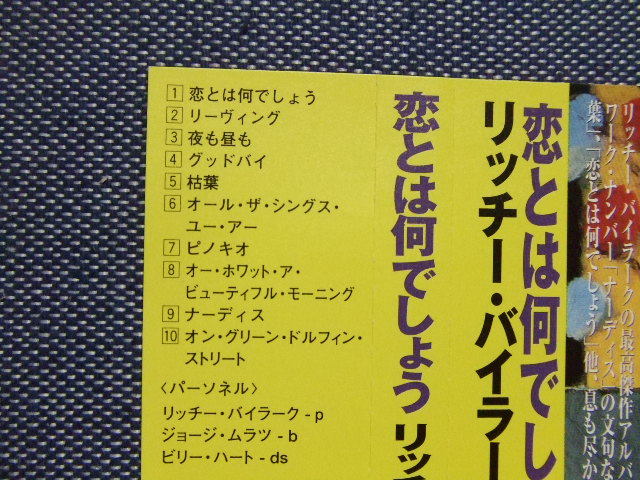 1 恋とは何でしょう
2 リーヴィング
3 夜も昼も
4 グッドバイ
5 枯葉
6 オール・ザ・シングス・
ユー・アー
7 ピノキオ
8 オー・ホワット・ア・
ビューティフル・モーニング
9 ナーディス
10 オン・グリーン・ドルフィン・
ストリート
〈パーソネル〉
リッチー・バイラーク - p
ジョージ・ムラツ - b
ビリー・ハート - ds
恋とは何でしょう リッ
恋とは何でし
リッチー・バイラー
リッチー・バイラークの最高傑作アルバ
ワーク・ナンバー「ナーディス」の文句な
葉」、「恋とは何でしょう」他、息も尽か